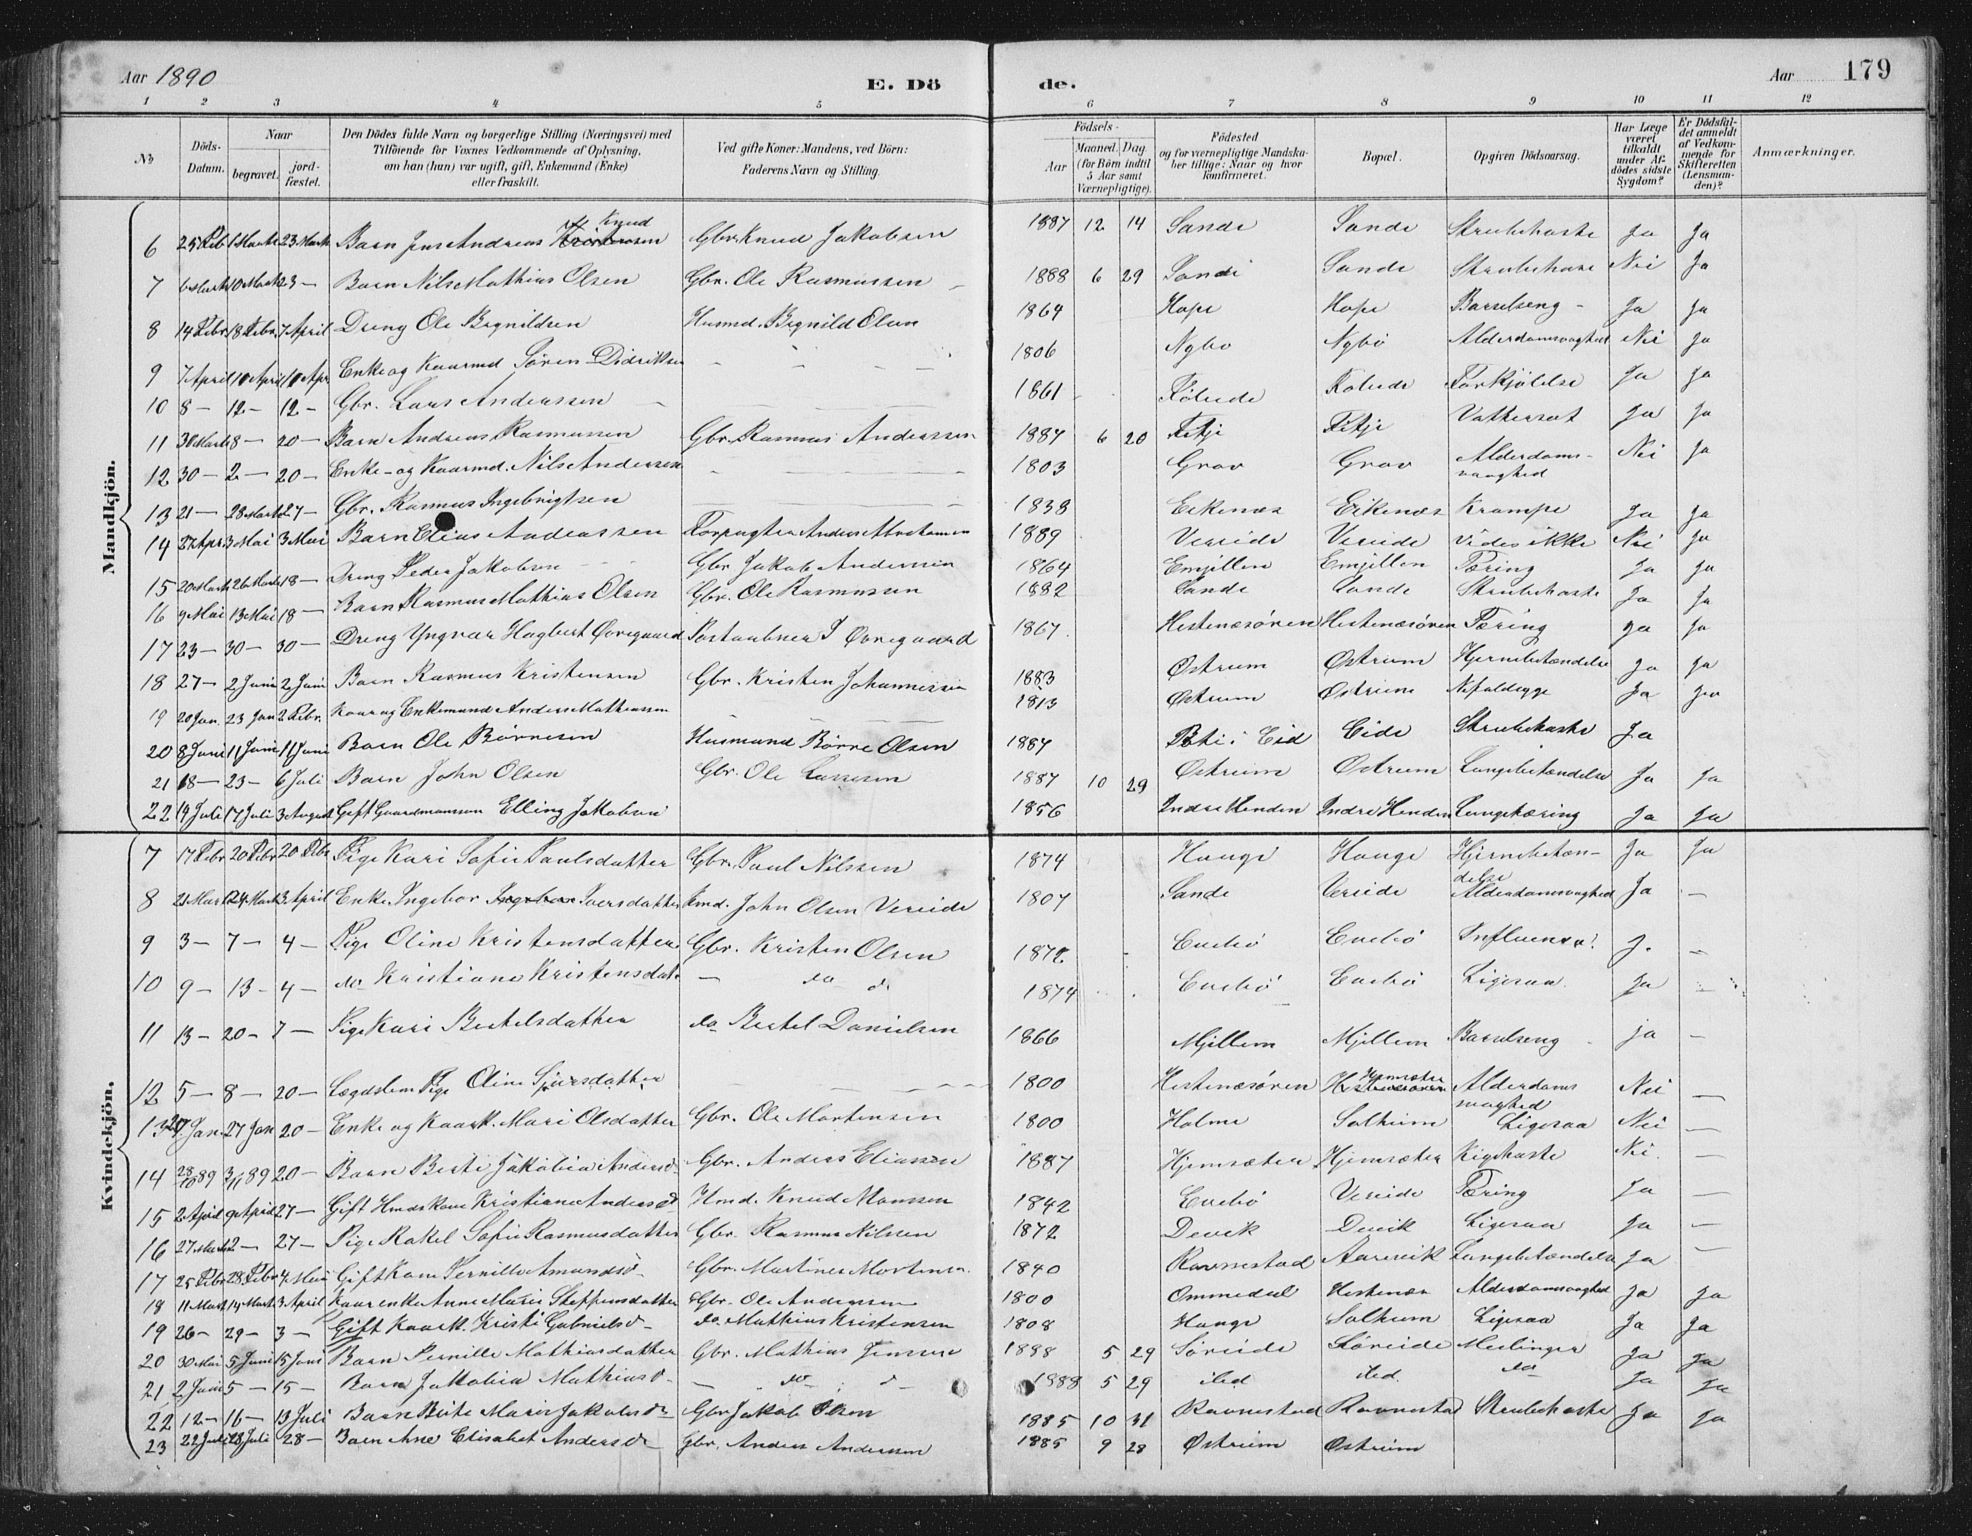 Aar 1890 E. Dö de. Aar 179
1 2 3 4 5 6 7 8 9 10 11 12
No
Döds-Datum.
Naar
begravet. jordfæstet.
Den Dödes fulde Navn og borgerlige Stilling (Næringsvei) med Tilföiende for Voxnes Vedkommende af Oplysning, om han (hun) var ugift, gift, Enkemand (Enke) eller fraskilt.
Ved gifte Koner: Mandens, ved Börn: Faderens Navn og Stilling.
Födsels-
Aar Maaned. Dag
(for Börn indtil 5 Aar samt Værnepligtige).
Födested og for værnepligtige Mandskaber tillige: Naar og hvor konfirmeret.
Bopæl.
Opgiven Dödsaarsag.
Har Læge været tilkaldt under Afdödes sidste Sygdom?
Er Dödsfaldet anmeldt af Vedkommende for Skifteretten (Lensmanden)?
Anmærkninger.
Mandkjön.
6 25 Febr 1 Marts 23 Marts Barn Jens Andreas Knud Gbr. Knud Jakobsen 1887 12 14 Sande Sande Strubehoste Ja Ja
7 6 Marts 10 Marts 23 — Barn Nils Mathias Olsen Gbr. Ole Rasmussen 1888 6 29 Sande Sande Strubehoste Nei Ja
8 14 Febr 18 Febr. 7 April Dreng Ole Bégnildsen Husmd. Bégnild Olsen 1864 Hope Hope Barselseng - Ja Ja
9 7 April 10 April 10 Apr Enke og Kaarmd Søren Didriksen 1806 Nybø Nybø Alderdomsvaghed Nei Ja
10 8 — 12 — 12 — Gbr. Lars Anderssen 1861 Forkjølelse Ja Ja
11 30 Marts 8 — 20 — Barn Andreas Rasmussen Gbr. Rasmus Anderssen 1887 6 20 Fitje Fitje Vattersot Ja Ja
12 30 — 2 — 20 — Enke- og Kaarmd. Nils Anderssen 1803 Grov Grov Alderdoms-vaaghed Nei Ja
13 21 — 28 Marts 27 — Gbr. Rasmus Ingebrigtsen 1838 Eikenæs Eikenæs Krampe Ja Ja
14 27 Apr. 3 Mai 3 Mai Barn Elias Anderssen Forpagter Anders 1889 Vereide Vereide Vides ikke Nei Ja
15 20 Marts 26 Marts 18 — Dreng Peder Jakobsen Gbr. Jakob Andersen 1864 Emjellen Emjellen Tæring Ja Ja
16 9 Mai 13 Mai 18 — Barn Rasmus Mathias Olsen Gbr. Ole Rasmussen 1882 Sande Sande Strubehoste Ja Ja
17 23 — 30 — 30 — Dreng Yngvar Hagbert Øvregaard Postaabner J Øvregaard 1867 Hestenæsøren Hestenæsøren Tæring Ja Ja
18 27 — 2 Juni 2 Juni Barn Rasmus Kristensen Gbr. Kristen Johannessen 1883 Østrum Østrum Hjernebetændelse Ja Ja
19 20 Jan. 23 Jan 2 Febr. Kaar og Enkemand Anders Mathiassen 1813 Østrum Østrum Ja Ja
20 8 Juni 11 Juni 11 Juni Barn Ole Børresen Husmand Børre Olsen 1887 Eid Eide Strubehoste Ja
21 18 — 23 — 6 Juli Barn John Olsen Gbr. Ole Larssen 1887 10 29 Østrum Østrum Lungebetændelse Ja Ja
22 14 Juli 17 Juli 3 August Gift Gaardmandssøn Elling Jakobsen 1856 Indre Henden Indre Henden Lungetæring Ja Ja
Kvindekjön.
7 17 Febr 20 Febr 20 Febr Pige Kari Sofie Paulsdatter Gbr. Paul Nilssen 1874 Hauge Hauge Hjernebetæn-delse Ja Ja
8 21 Marts 24 Marts 3 April Enke Ingebor Iversdatter Kmd. John Olsen Vereide 1807 Sande Vereide Alderdomsvaghed Ja —
9 3 — 7 — 4 — Pige Oline Kristensdatter Gbr. Kristen Olsen 1872 Evebø Evebø Influensa. J. —
10 9 — 13 — 4 — do Kristiane Kristensdatr — do d. 1874 Evebø Evebø Ligesaa. Ja —
11 13 — 20 — 7 — Pige Kari Bertelsdatter do Bertel Danielsen 1866 Mjellem Mjellem Barselseng Ja —
12 5 — 8 — 20 — Lægdslem Pige Oline Sjursdatter 1800 Hestenæsøren Hjemsæter Alderdoms vaghed Nei —
13 Jan. 27 Jan 20 — Enke og Kaark. Mari Olsdatter Gbr. Ole Mortensen 1800 Holme Solheim Ligesaa Nei —
14 28/10 89 3/11 89 20 — Barn Berte Jakobia Andersd- Gbr. Anders Eliassen 1887 Hjemsæter Hjemsæter Kighoste Nei. —
15 2 April 9 April 27 — Gift Hmdskone Kristiane Andersd Hmd. Knud Monssen 1842 Evebø Vereide Tæring Ja —
16 27 Marts 2 — 27 — Pige Rakel Sofie Rasmusdatter Gbr. Rasmus Nilssen 1872 Devik Devik Ligesaa Ja —
17 25 Febr 28 Febr 4 Mai Gift Kone Pernille Amundsd- Gbr. Martines Mortensen 1840 Ravnestad Aarevik Lungebetændelse Ja —
18 11 Marts 14 Marts 3 April Kaarenke Anne Marie Steffensdatter Gbr. Ole Anderssen 1800 Ommedal Hestenæs Alderdomsvaghed Ja Ja
19 26 — 29 — 3 — Gift Kaark. Kristi Gabrielsd- do Mathias Kristensen 1808 Hauge Solheim Ligesaa Ja Ja
20 30 Mai 5 Juni 15 Juni Barn Pernille Mathiasdatter Gbr. Mathias Jenssen 1888 5 29 Søreide Søreide Meslinger Ja Ja
21 2 Juni 5 — 15 — Barn Jakobia Mathiasd — do — d — 1888 5 29 ibid ibid. do Ja Ja
22 12 — 16 — 13 Juli Barn Berte Marie Jakobsd- Gbr. Jakob Olsen 1885 10 31 Ravnestad Ravnestad Strubehoste Ja Ja
23 22 Juli 28 Juli 28 — Barn Ane Elisabet Andersd- Gbr. Anders Anderssen 1885 9 28 Østrum Østrum